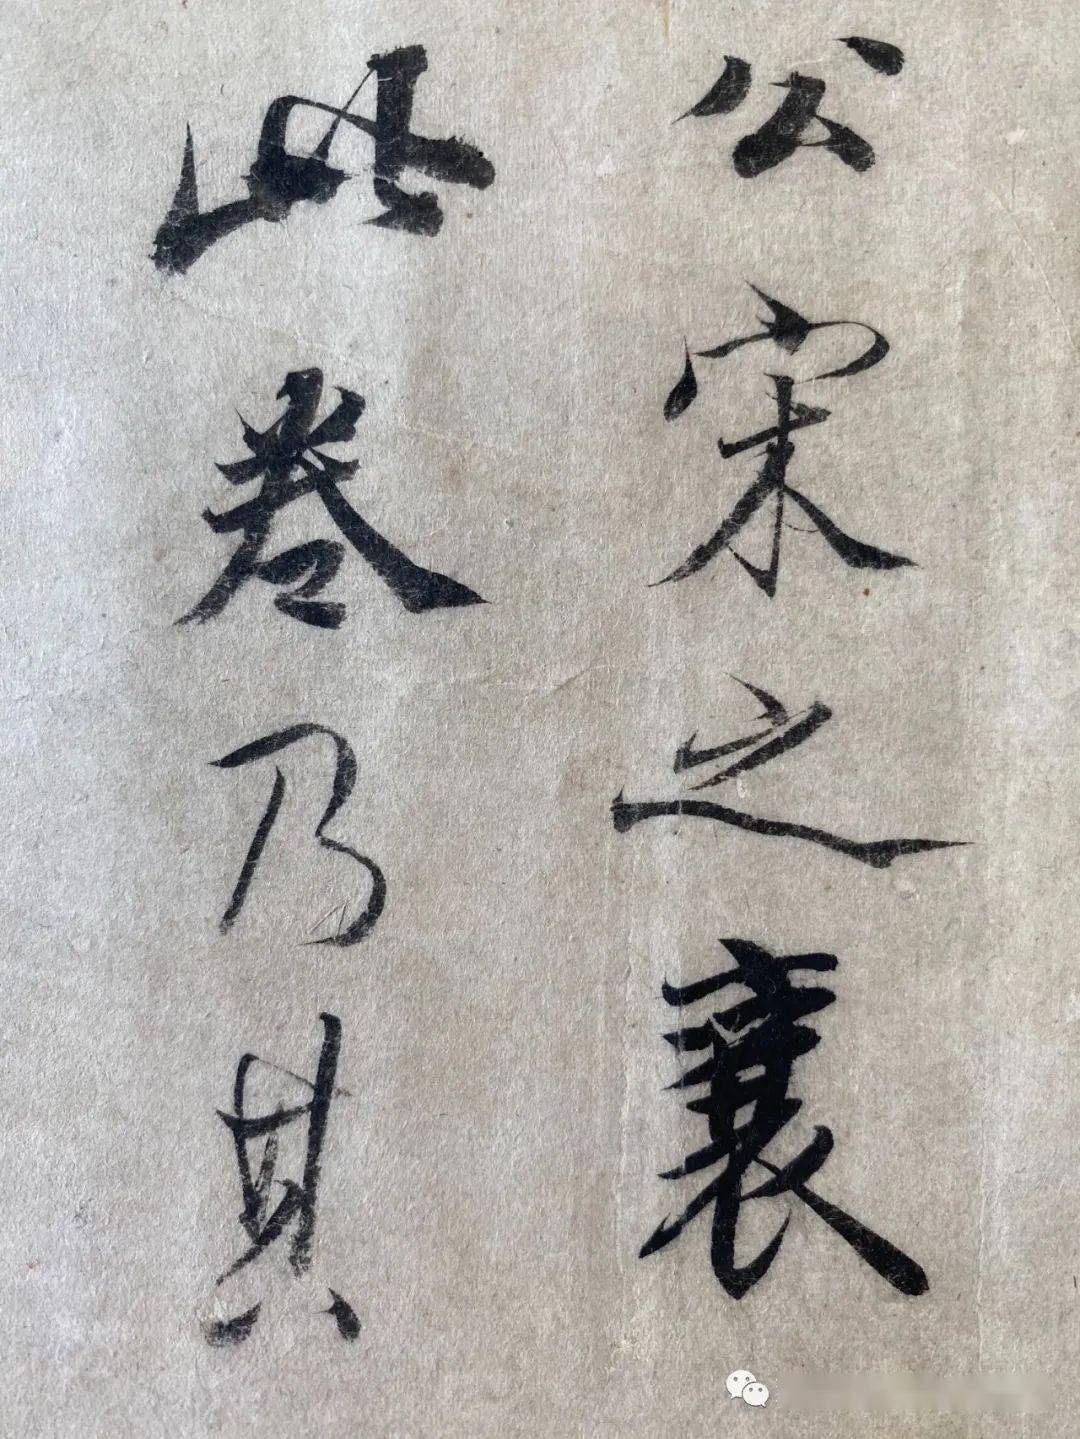 公宋之襄
此卷乃其